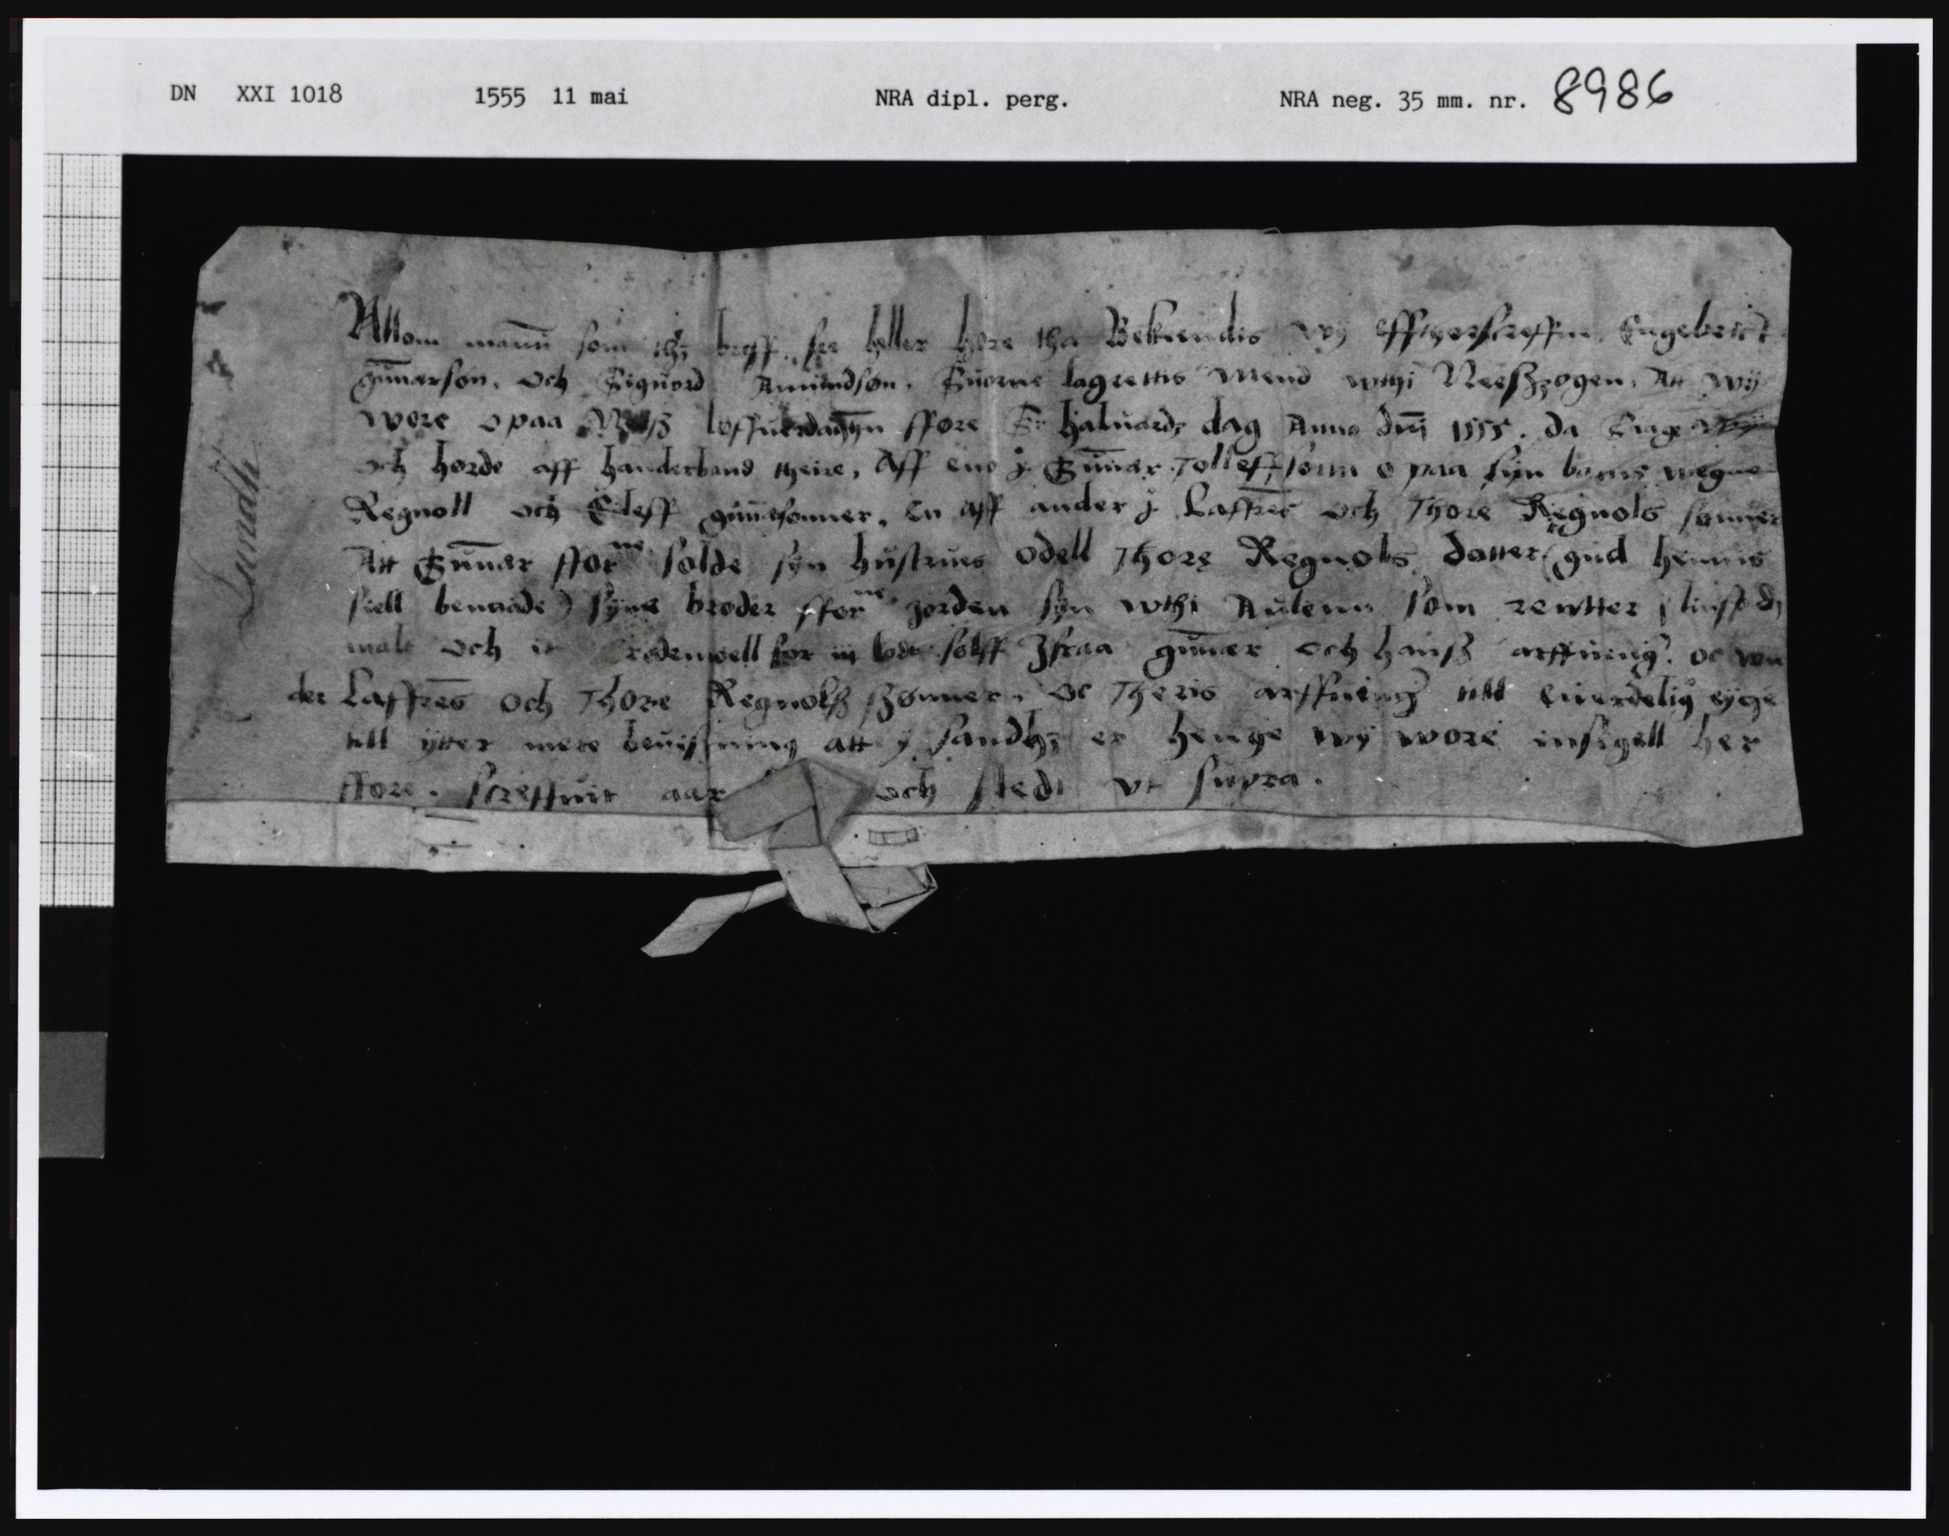 DN XXI 1018 1555 11 mai NRA dipl. perg. NRA neg. 35 mm. nr. 8986
Allom mānn som thz breff see heller høre tha Bekiendis wÿ efftherscreffne Engebrict
gūnarson, och Siguord Amundson, Suorne lagrettis mend wthi Neeszzogen, Att wÿ
wore opaa løffuerdaghen ffore Sr haluardz dag Anno dnī 1555. da Saage
och hørde aff handerband theire, Aff eno j Gūnar Tolleffsonn opaa sÿn barns wegne
Regnoll och Eileff gūnasonner, en aff ander j Laffres och Thore Regnols sonner
Att Gūnar fforne solde sÿn hustrues odell Thore Regnols datter (gud hennis
siell benaade) sÿne broder fforne jorden sÿn wthi Aulenn som rentter
male och it for iij lodt sølff Jfraa gūnar och hansz arffuing. oc wn
der Laffrēs och Thore Regnolsz szønner. oc Theris arffuing till euerdelig eÿge
till ÿtter mere beuisning att ÿ sandhz er henge wÿ wore insigell her
ffore. screffuit aar och stedt vt supra.
Lundh